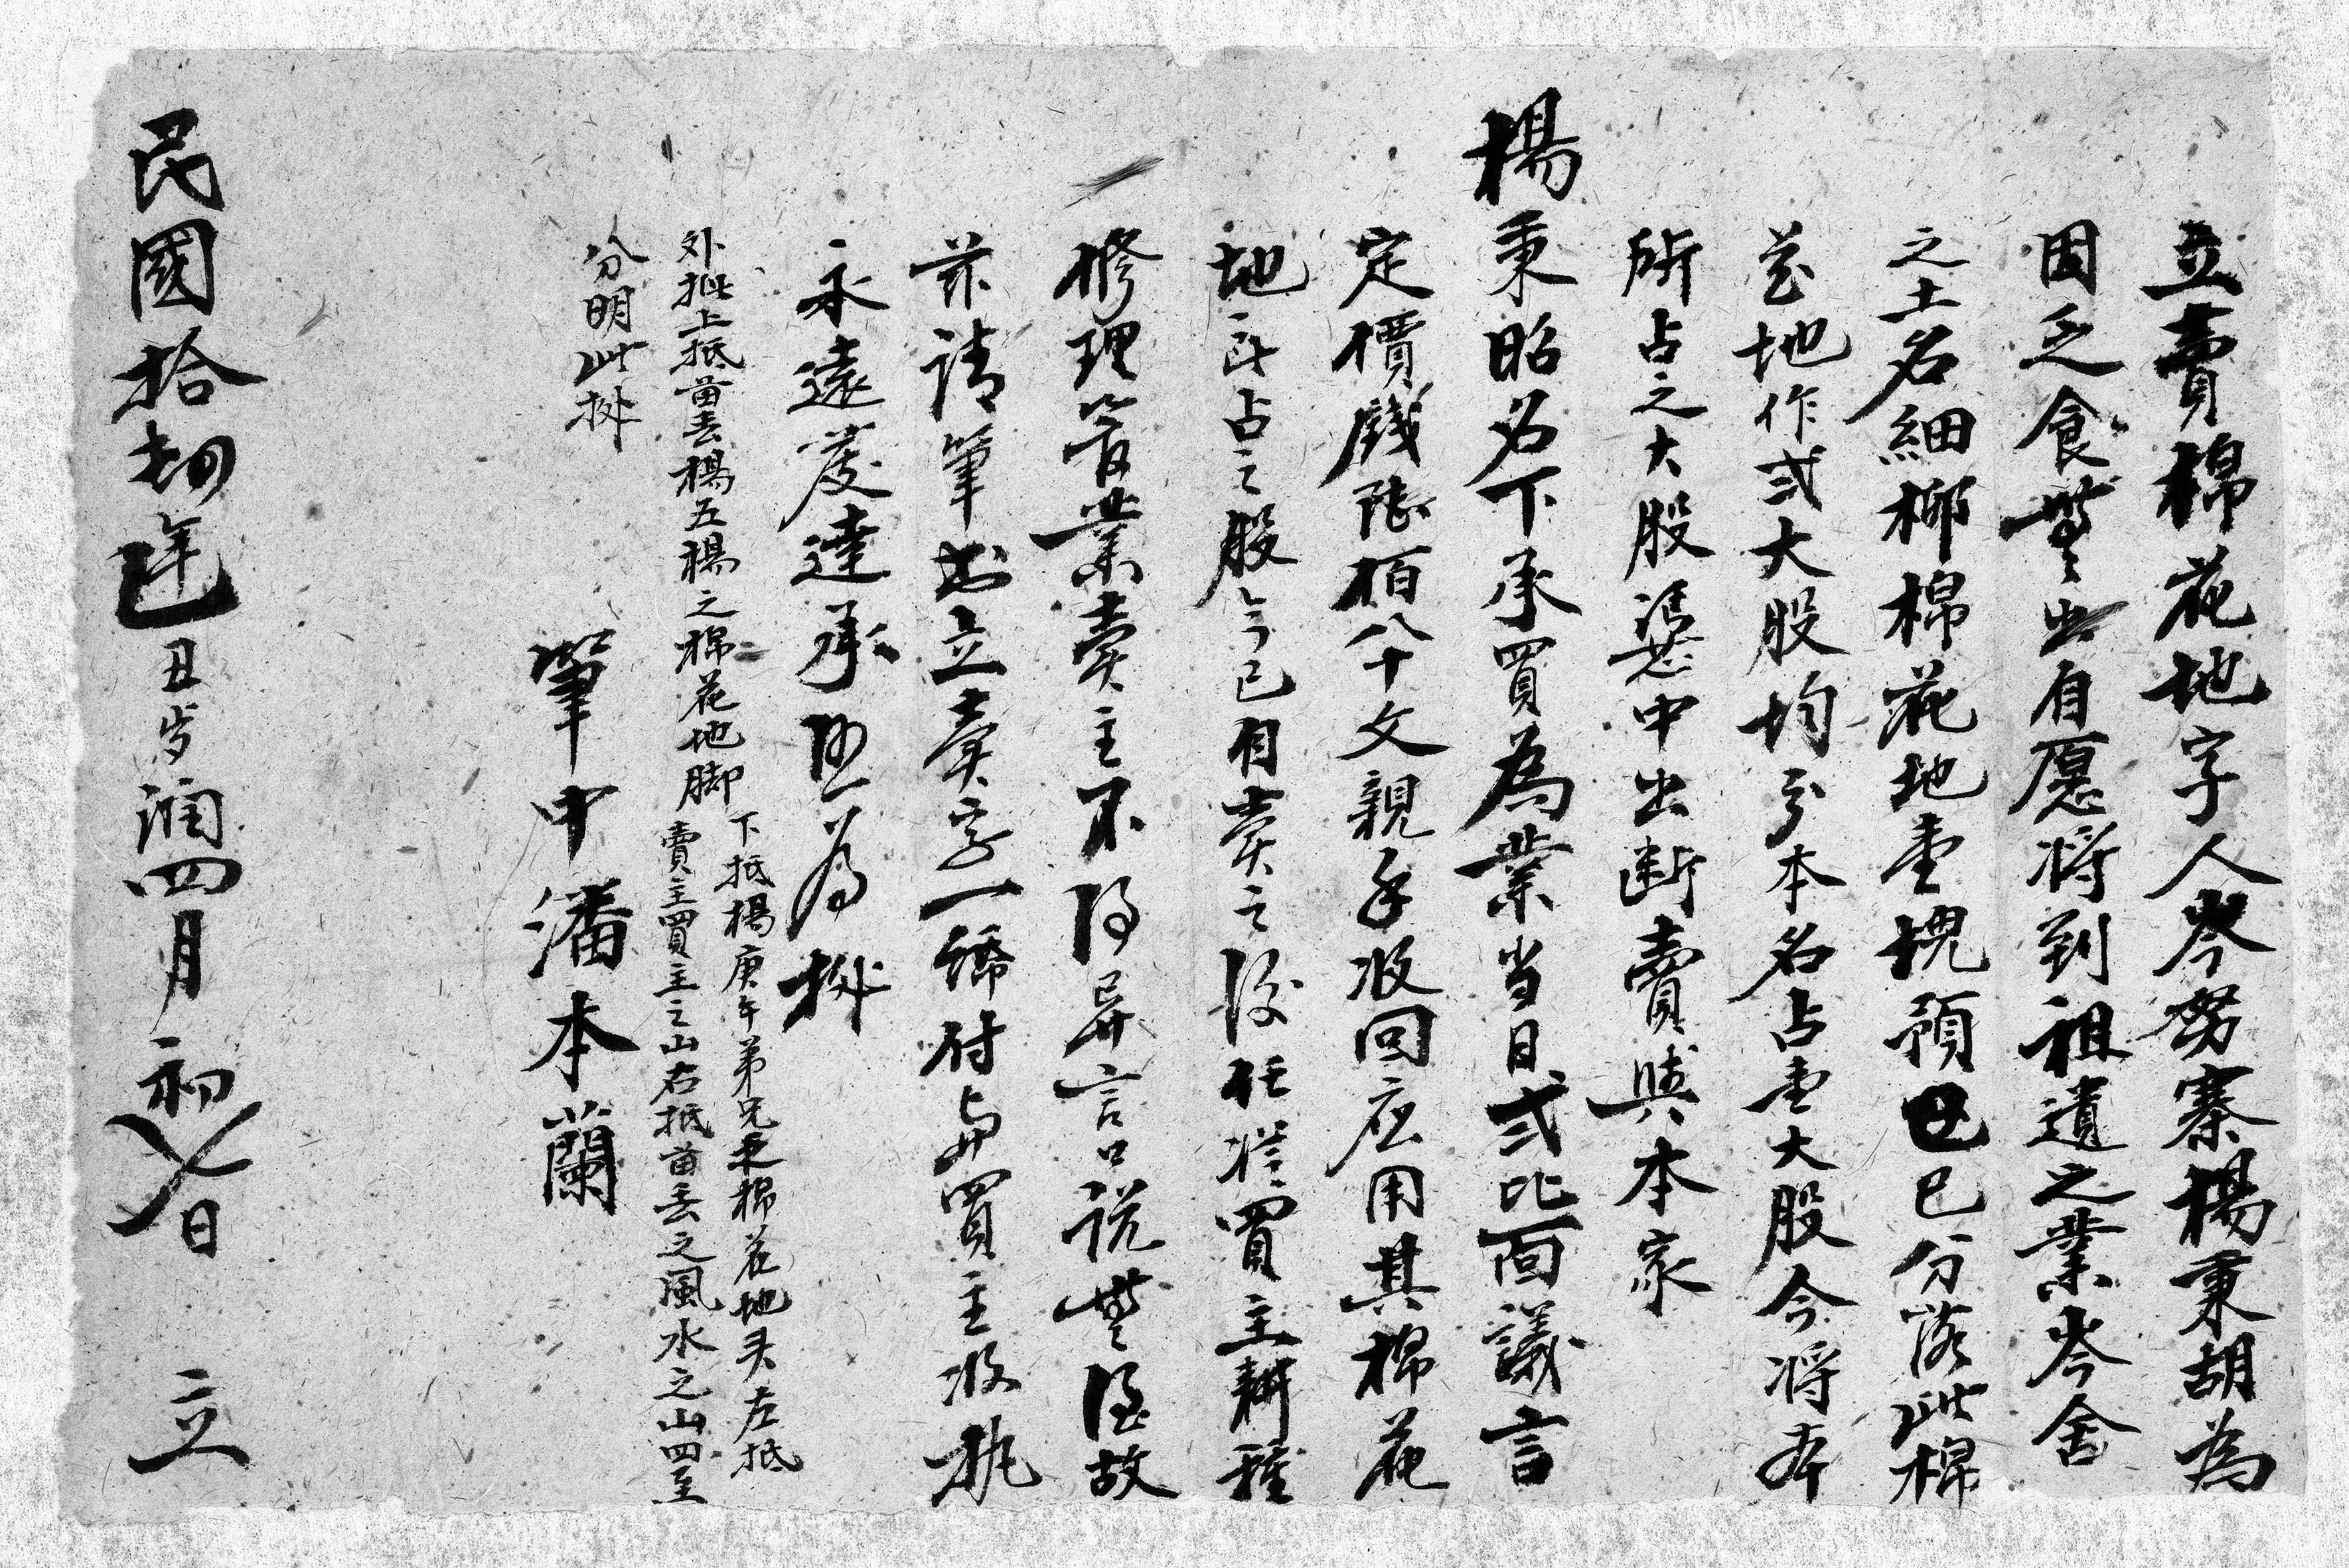 立賣棉花地字人岑努寨楊秉胡為
因乏食無出自愿將到祖遺之業岑舍
之土名細梛棉花地壹塊預㔾已分落此棉
花地作弍大股均分本名占壹大股今將本
所占之大股憑中出斷賣與本家
楊秉昭名下承買為業当日弍比面議言
定價錢陸栢八十文親手收回应用其棉花
地所占之股今已自賣之後任從買主耕種
修理管業賣主不得異言口説無徑故
茲請筆出立賣字一紙付與買主收执
永遠發達承照為㨿
外批上抵苗丢楊五楊之棉花地脚下抵楊庚午弟兄更棉花地头左抵
賣主買主之山右抵苗丢之風水之山四至
分明此㨿
筆中潘本蘭
民國拾四年乙丑岁潤四月初乂日 立